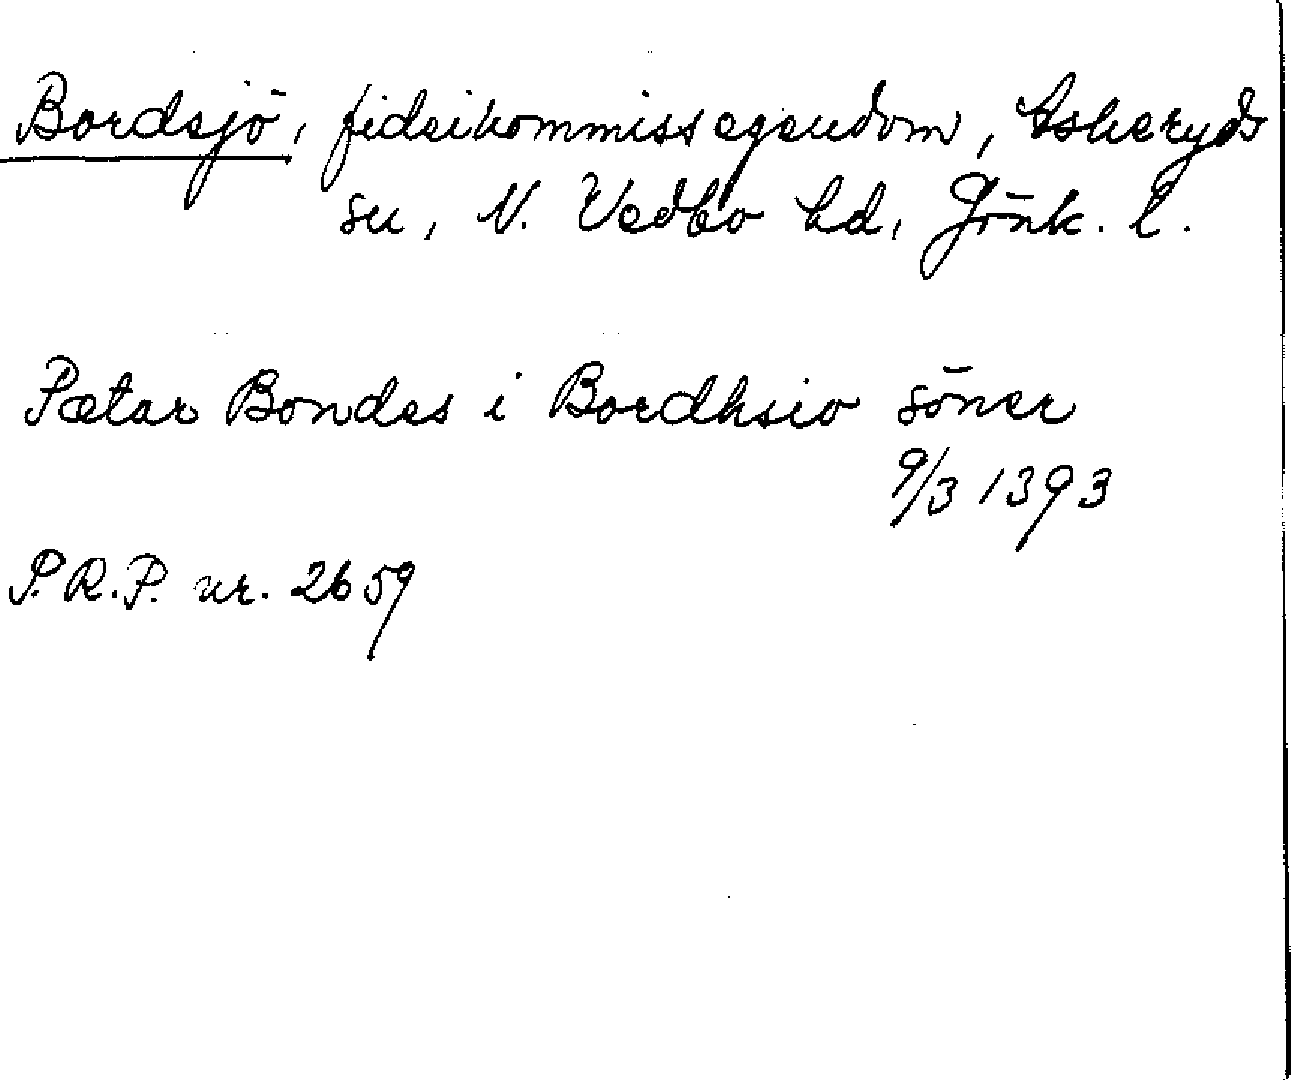 Bordsjö, fideikommissegendom, Askeryds
sn, N. Vedbo hd, Jönk. l.
Pætar Bondes i Bordhsio söner
9/3 1393
P.R.P. nr. 2659